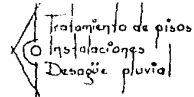 Tratamiento de pisos
Instalaciones
Desagüe pluvial